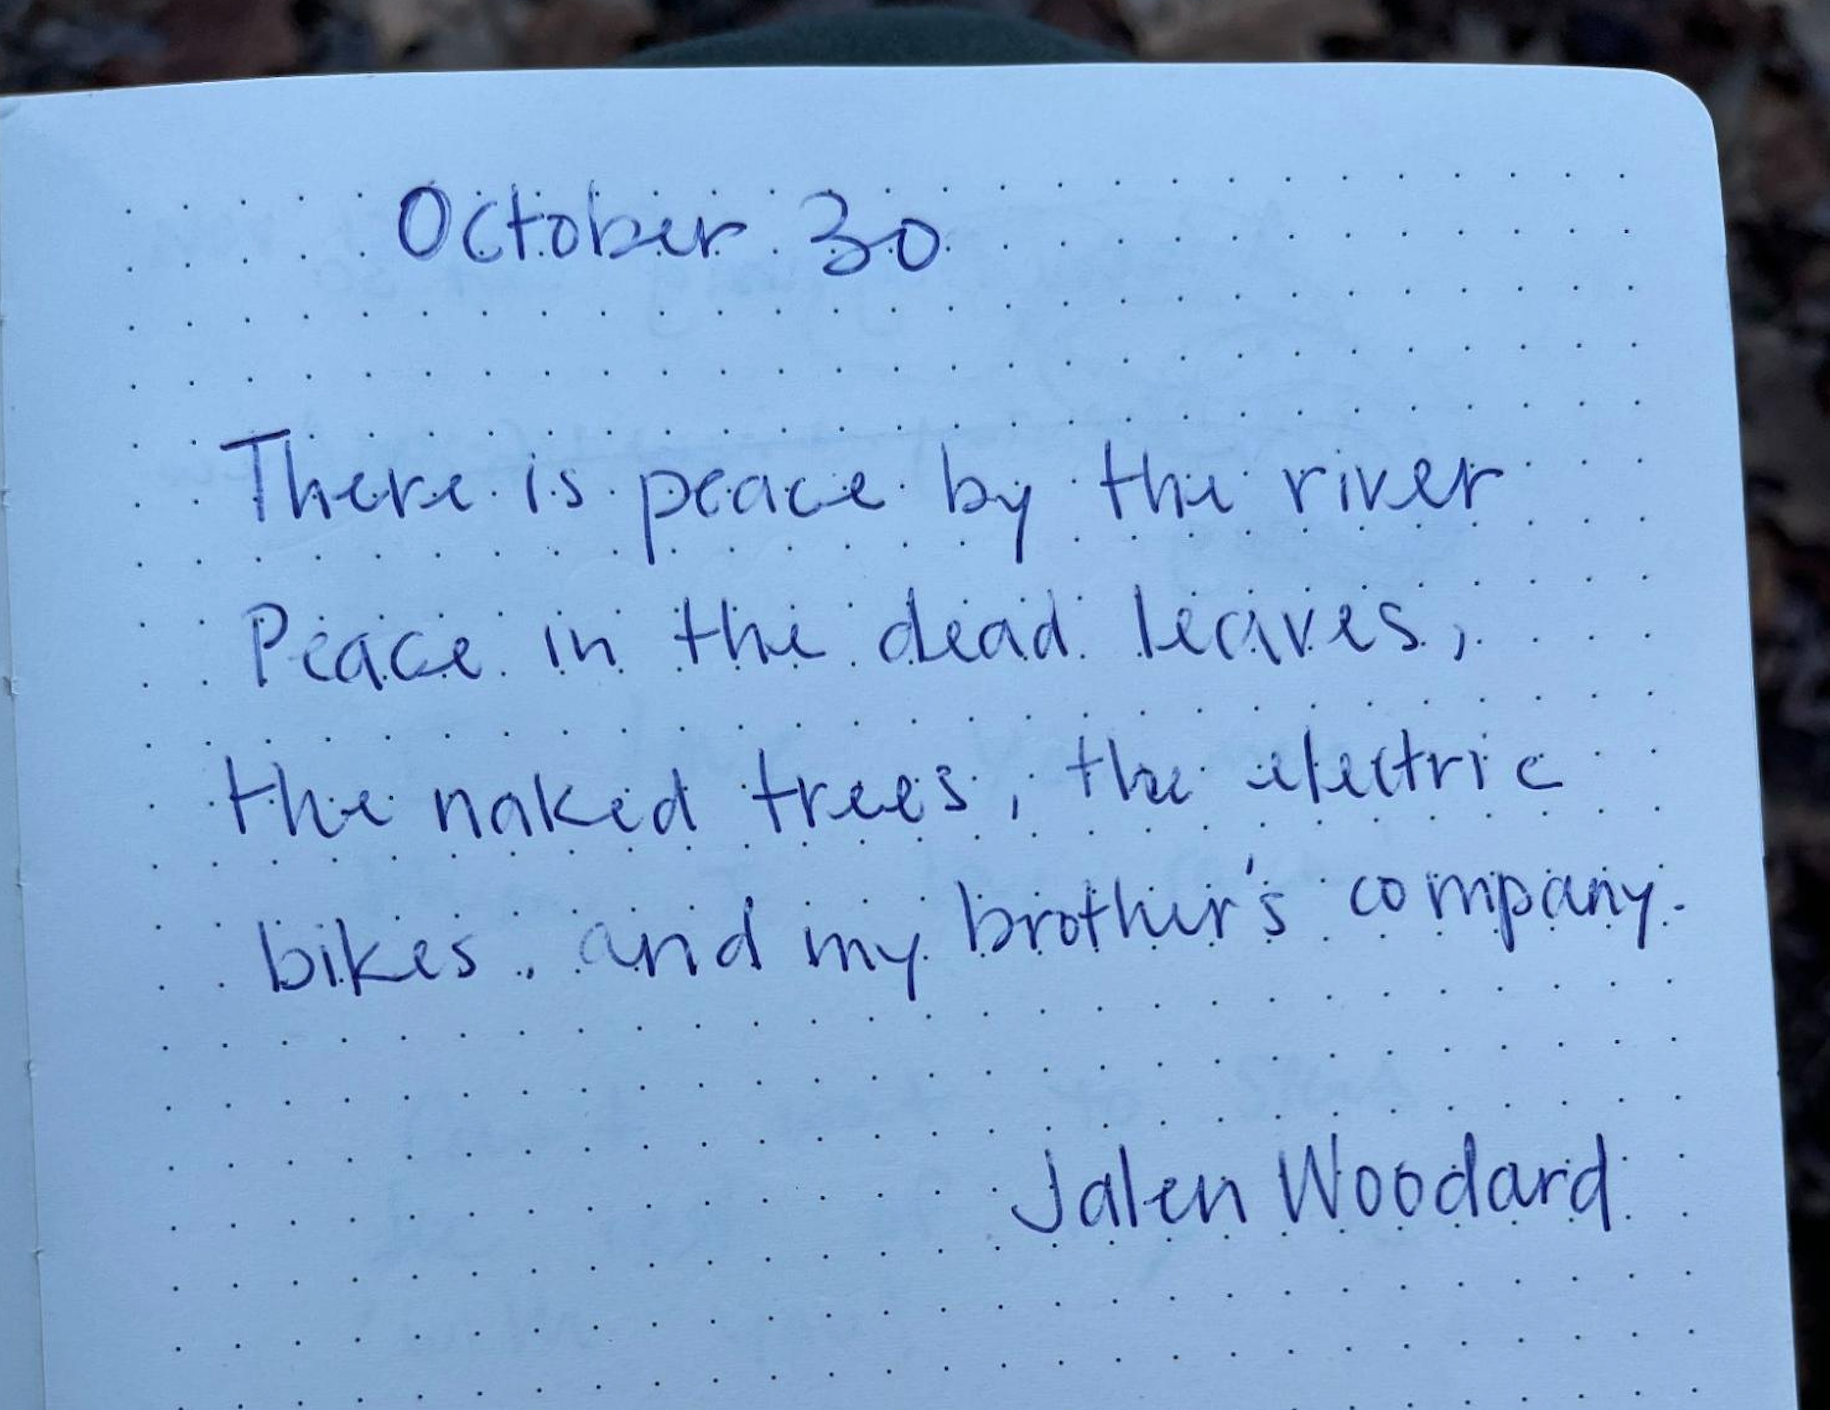 October 30
There is peace by the river
Peace in the dead leaves,
the naked trees, the electric
bikes, and my brother's company.
Jalen Woodard